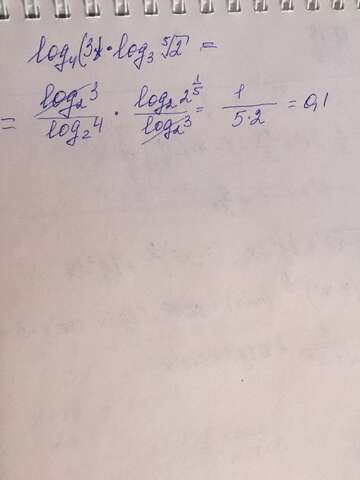 log₄(3) · log₃ ⁵√2 =
= log₂3 / log₂4 · log₂2^(1/5) / log₂3 = 1 / 5·2 = 0,1